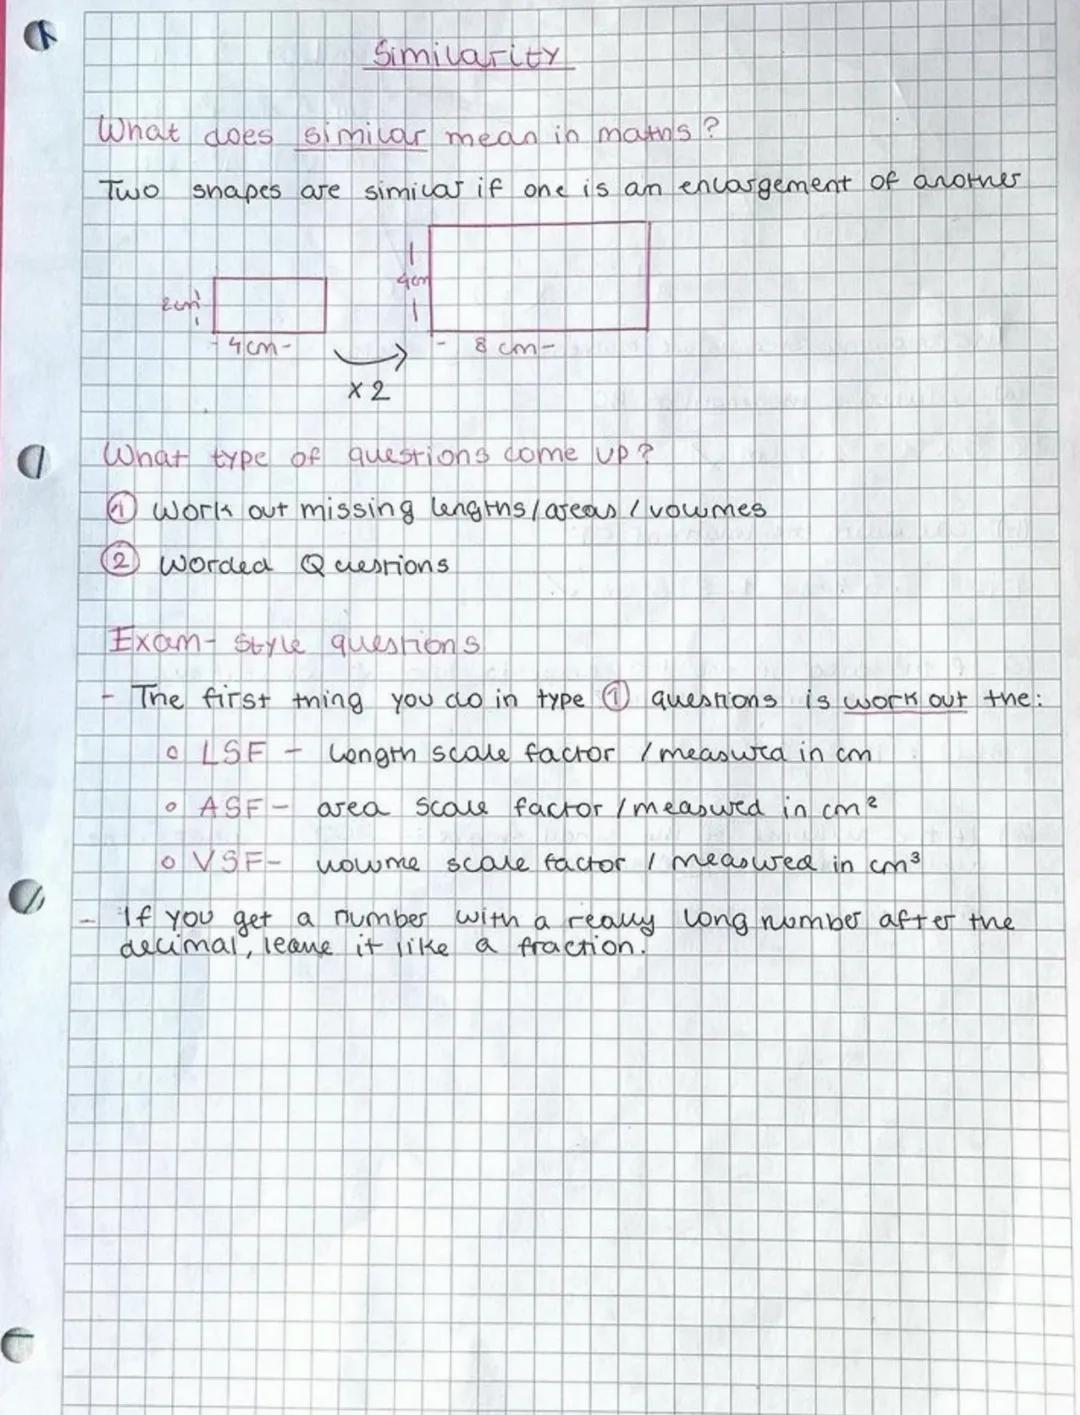 Similarity
What does similar mean in maths?
Two shapes are similar if one is an enlargement of another
2cm
4cm
4cm
8 cm
x 2
What type of questions come up?
1 Work out missing lengths/areas/volumes
2 Worded Questions
Exam-style questions
- The first thing you do in type 1 questions is work out the:
o LSF - Length scale factor / measured in cm
o ASF - area scale factor / measured in cm²
o VSF - volume scale factor / measured in cm³
- If you get a number with a really long number after the
decimal, leave it like a fraction.